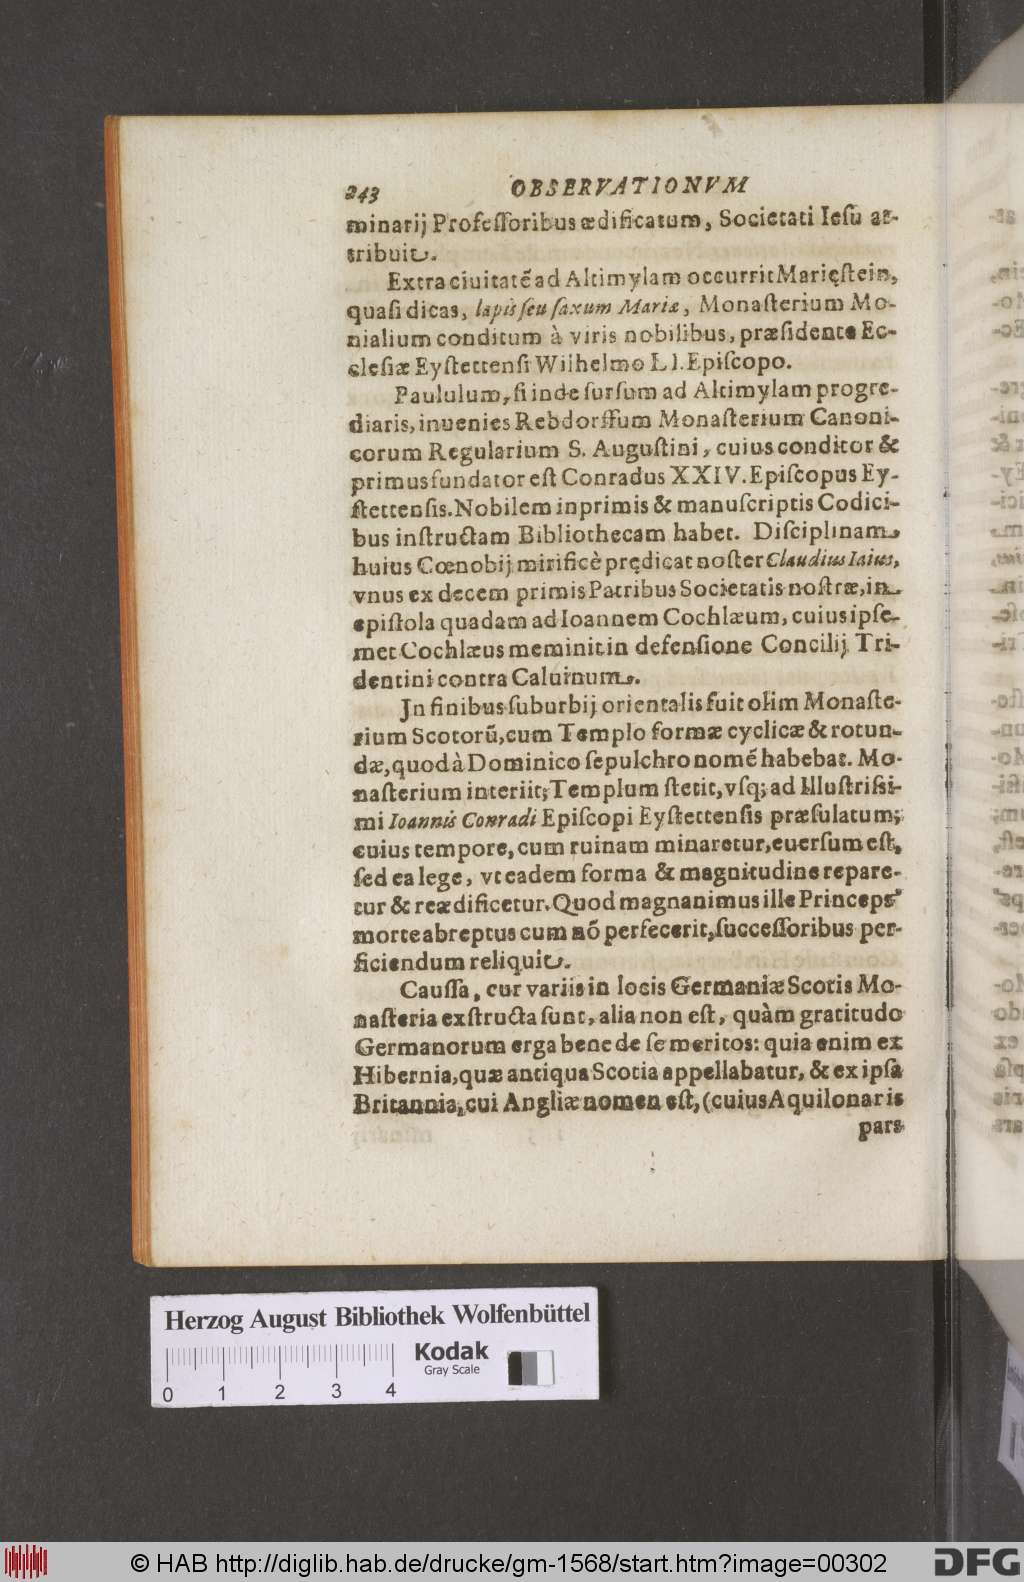 243 OBSERVATIONVM
minarij Profeſſoribus ædificatum, Societati Ieſu at-
tribuit.
Extra ciuitatẽ ad Altimylam occurrit Marięſtein,
quaſi dicas, lapis ſeu ſaxum Mariæ, Monaſterium Mo-
nialium conditum à viris nobilibus, præſidente Ec-
cleſiæ Eyſtettenſi Wilhelmo LI. Epiſcopo.
Paululum, ſi inde ſurſum ad Altimylam progre-
diaris, inuenies Rebdorffum Monaſterium Canoni-
corum Regularium S. Auguſtini, cuius conditor &
primus fundator eſt Conradus XXIV. Epiſcopus Ey-
ſtettenſis. Nobilem inprimis & manuſcriptis Codici-
bus inſtructam Bibliothecam habet. Diſciplinam
huius Cœnobij mirificè prędicat noſter Claudius Iaius,
vnus ex decem primis Patribus Societatis noſtræ, in
epiſtola quadam ad Ioannem Cochlæum, cuius ipſe-
met Cochlæus meminit in defenſione Concilij Tri-
dentini contra Caluinum.
Jn finibus ſuburbij orientalis fuit olim Monaſte-
rium Scotorũ, cum Templo formæ cyclicæ & rotun-
dæ, quod à Dominico ſepulchro nomẽ habebat. Mo-
naſterium interiit; Templum ſtetit, vſq; ad Illuſtriſsi-
mi Ioannis Conradi Epiſcopi Eyſtettenſis præſulatum;
cuius tempore, cum ruinam minaretur, euerſum eſt,
ſed ea lege, vt eadem forma & magnitudine repare-
tur & reædificetur. Quod magnanimus ille Princeps
morte abreptus cum nõ perfecerit, ſucceſſoribus per-
ficiendum reliquit.
Cauſſa, cur variis in locis Germaniæ Scotis Mo-
naſteria exſtructa ſunt, alia non eſt, quàm gratitudo
Germanorum erga bene de ſe meritos: quia enim ex
Hibernia, quæ antiqua Scotia appellabatur, & ex ipſa
Britannia, cui Angliæ nomen eſt, (cuius Aquilonaris
pars
Herzog August Bibliothek Wolfenbüttel
Kodak
Gray Scale
0 1 2 3 4
© HAB http://diglib.hab.de/drucke/gm-1568/start.htm?image=00302
DFG